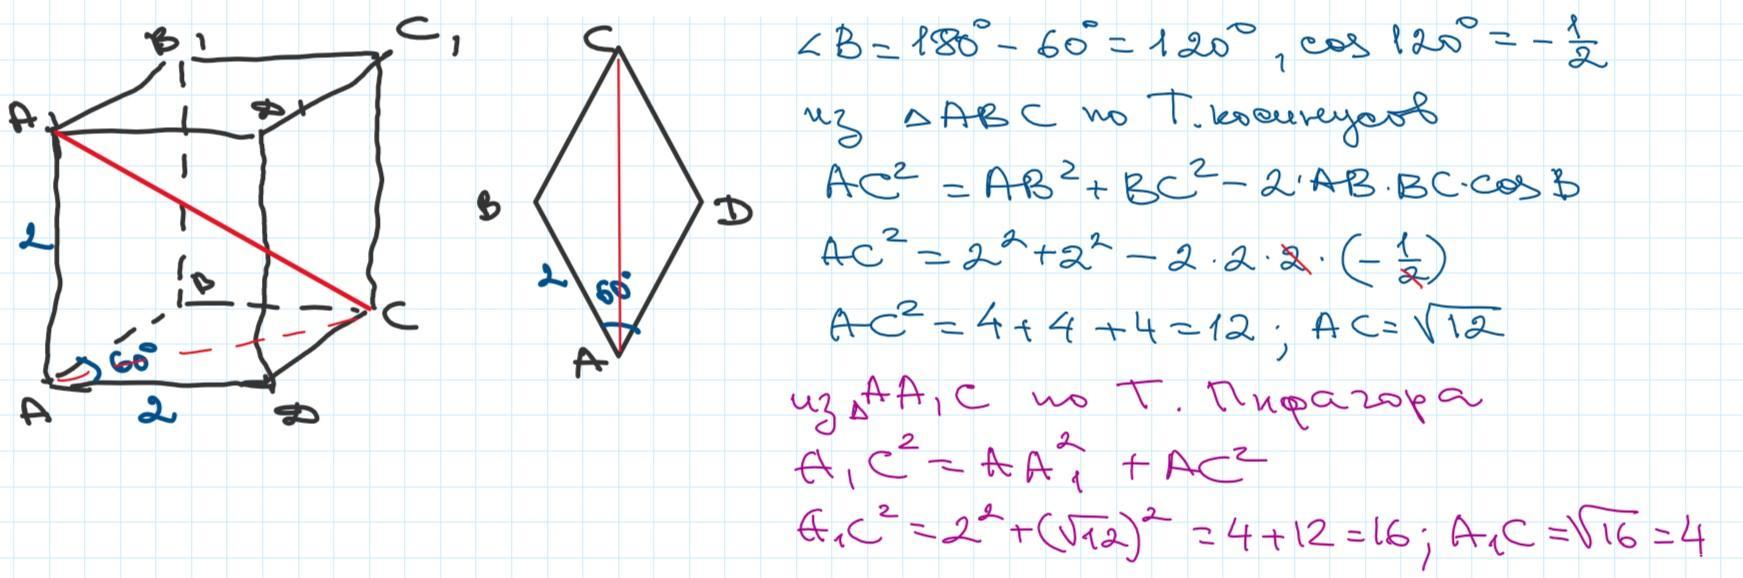 B1 C1
A D1
2
B C
60°
A 2 D
C
B D
2 60°
A
∠B = 180° - 60° = 120°, cos 120° = -1/2
из △ABC по Т. косинусов
AC² = AB² + BC² - 2·AB·BC·cos B
AC² = 2² + 2² - 2·2·2·(-1/2)
AC² = 4 + 4 + 4 = 12; AC = √12
из △AA₁C по Т. Пифагора
A₁C² = AA₁² + AC²
A₁C² = 2² + (√12)² = 4 + 12 = 16; A₁C = √16 = 4